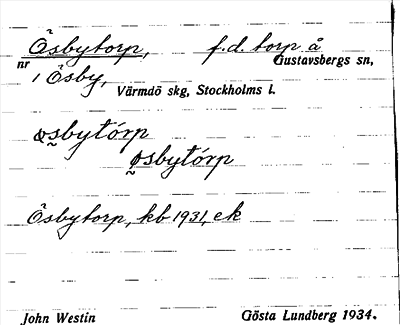 Ösbytorp, f.d. torp å
nr 1 Ösby, Gustavsbergs sn,
Värmdö skg, Stockholms l.
ösbytórp
ösbytórp
Ösbytorp, kb 1931, ek
John Westin Gösta Lundberg 1934.